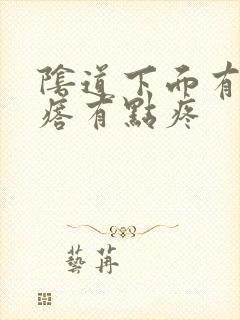 陰道下面有
瘩有點疼
藝苒